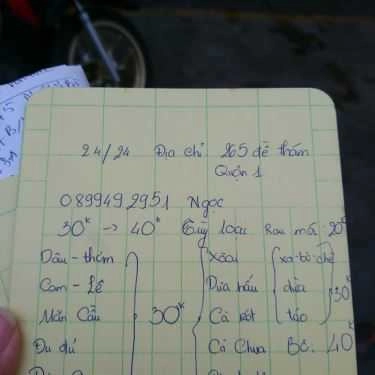 24/24 Địa chỉ 265 đề thám
Quận 1
0899492951 Ngọc
30k → 40k Tuỳ loại Rau má: 20k
Dâu - thơm
Cam - Lê
Mãn Cầu 30k
Đu đủ
Xoài
Dưa hấu
Cà rốt
Cà Chua
xa-bô-chê
dừa
táo
30k
Bơ: 40k